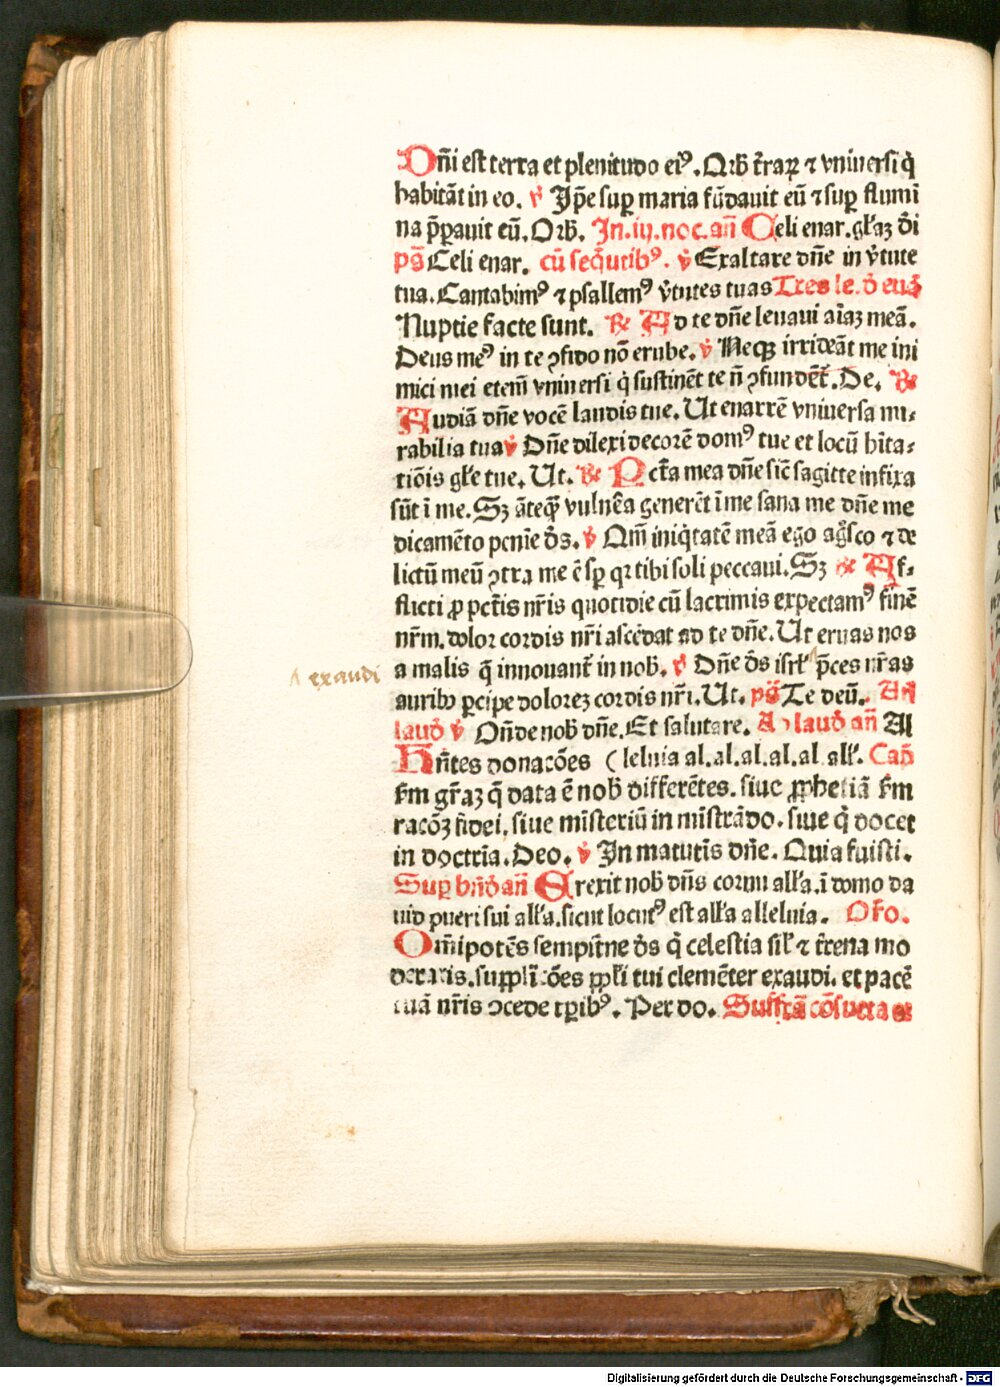 Dñi est terra et plenitudo eiꝰ. Orb̄ t̄raꝝ ⁊ vniuersi q̇
habitāt in eo. ℣ Ip̄e suꝑ maria fūdauit eū ⁊ suꝑ flumi
na p̄ꝑauit eū. Orb̄. In .iij. noc. añ Celi enar. gl̄aꝫ d̄i
ps̄ Celi enar. cū seq̄utibꝰ. ℣ Exaltare dñe in v̄tute
tua. Cantabimꝰ ⁊ psallemꝰ v̄tutes tuas Tres le. d̄ euā
Nuptie facte sunt. ℞ Ad te dñe leuaui aīaꝫ meā.
Deus meꝰ in te ꝯfido nō erube. ℣ Neqꝫ irrideāt me ini
mici mei etem̄ vniuersi q̇ sustinēt te ñ ꝯfundēt̄. De. ℞
Audiā dñe vocē laudis tue. Ut enarrē vniuersa mi-
rabilia tua ℣ Dñe dilexi decorē domꝰ tue et locū h̄ita-
tiōis gl̄e tue. Ut. ℞ Pct̄a mea dñe sic̄ sagitte infixa
sūt ī me. Sꝫ āteq̄ꝫ vulnēa generēt ī me sana me dñe me
dicamēto pēnie d̄s. ℣ Qm̄ iniq̇tatē meā ego ag̅sco ⁊ de
lictū meū ꝯtra me ē sꝑ qꝛ tibi soli peccaui. Sꝫ ℞ Af-
flicti ꝓ pct̄is nr̄is quotidie cū lacrimis expectamꝰ finē
nr̄m. dolor cordis nr̄i ascēdat ad te dñe. Ut eruas nos
a malis q̄ innouant̄ in nob̄. ℣ Dñe d̄s isrl̄ p̄ces nr̄as
exaudi
auribꝰ ꝑcipe dolorez cordis nr̄i. Ut. ps̄ Te deū. Añ
laud̄ ℣ Oñde nob̄ dñe. Et salutare. Ad laud̄ añ Al
Hñtes donacōes (leluia al. al. al. al. al. all̄. Cap̄
s̄m gr̄aꝫ q̄ data ē nob̄ differētes. siue ꝓphetiā s̄m
racōꝫ fidei. siue mīsteriū in mīstrādo. siue q̇ docet
in doctrīa. Deo. ℣ In matutīs dñe. Quia fuisti.
Suꝑ bñd̄ añ Erexit nob̄ dñs cornu all̄a. ī domo da
uid pueri sui all̄a. sicut locutꝰ est all̄a alleluia. Or̄o.
Om̄ipotēs sempit̄ne d̄s q̇ celestia sil̄ ⁊ t̄rena mo
deraris. supplicōes ppl̄i tui clemēter exaudi. et pacē
tuā nr̄is ꝯcede tꝑibꝰ. Per do. Suffrā cōsueta